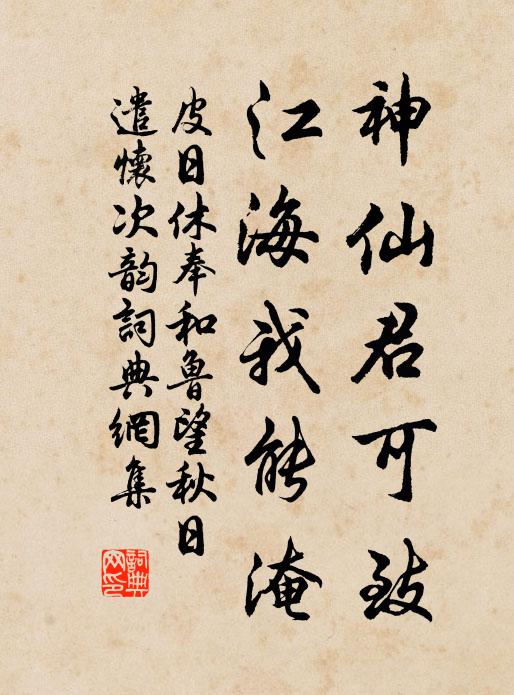 神仙君可致
江海我能淹
皮日休奉和鲁望秋日
遣懷次韵詞典網集
詞典
网印